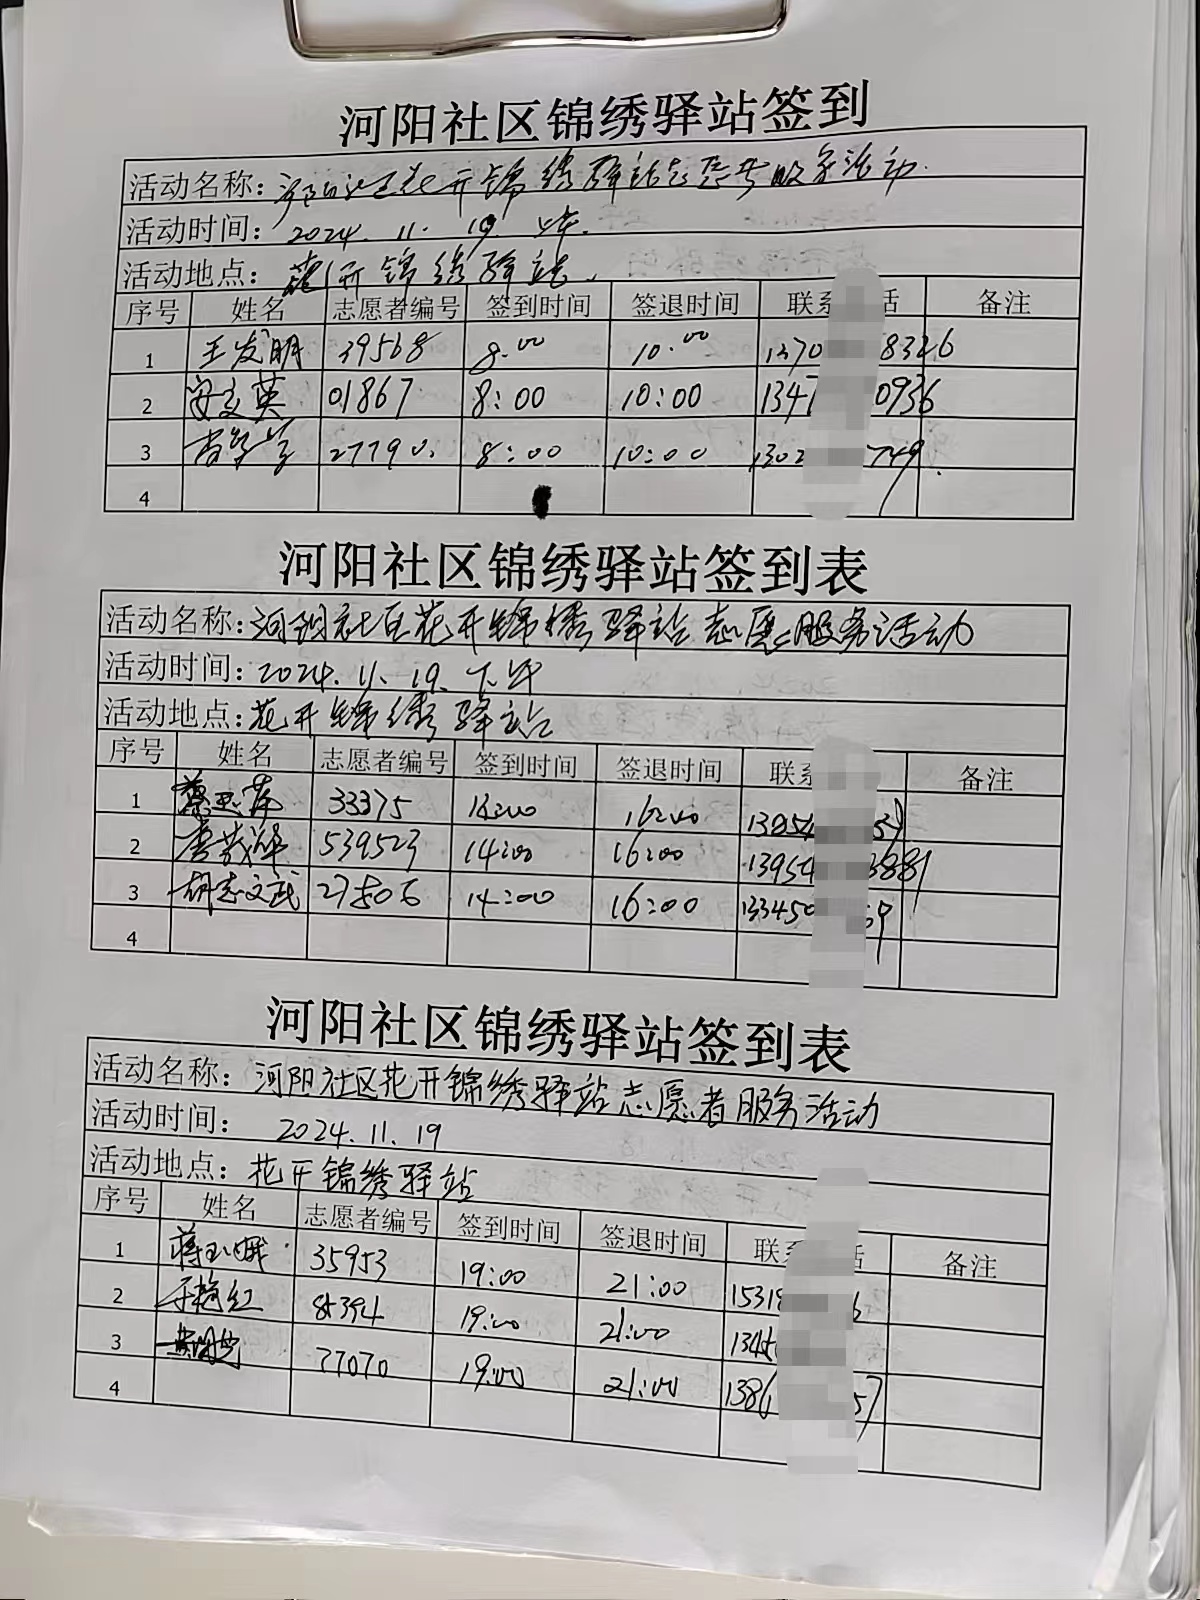 河阳社区锦绣驿站签到
活动名称：河阳社区花开锦绣驿站志愿者服务活动.
活动时间：2024.11.19 上午.
活动地点：花开锦绣驿站.
序号 姓名 志愿者编号 签到时间 签退时间 联系 话 备注
1 王发明 39568 8:00 10:00 1370 8326
2 安文英 01867 8:00 10:00 1347 0936
3 27790. 8:00 10:00 1302 749.
4
河阳社区锦绣驿站签到表
活动名称：河阳社区花开锦绣驿站志愿服务活动
活动时间：2024.11.19.下午
活动地点：花开锦绣驿站
序号 姓名 志愿者编号 签到时间 签退时间 联 备注
1 33375 16:00 13854
2 539523 14:00 16:00 13954 3881
3 胡志文武 27506 14:00 16:00 133450 59
4
河阳社区锦绣驿站签到表
活动名称：河阳社区花开锦绣驿站志愿者服务活动
活动时间：2024.11.19
活动地点：花开锦绣驿站
序号 姓名 志愿者编号 签到时间 签退时间 联系 话 备注
1 35953 19:00 21:00 1531 6
2 于艳红 85394 19:00 21:00 134
3 77070 19:00 21:00 138 57
4